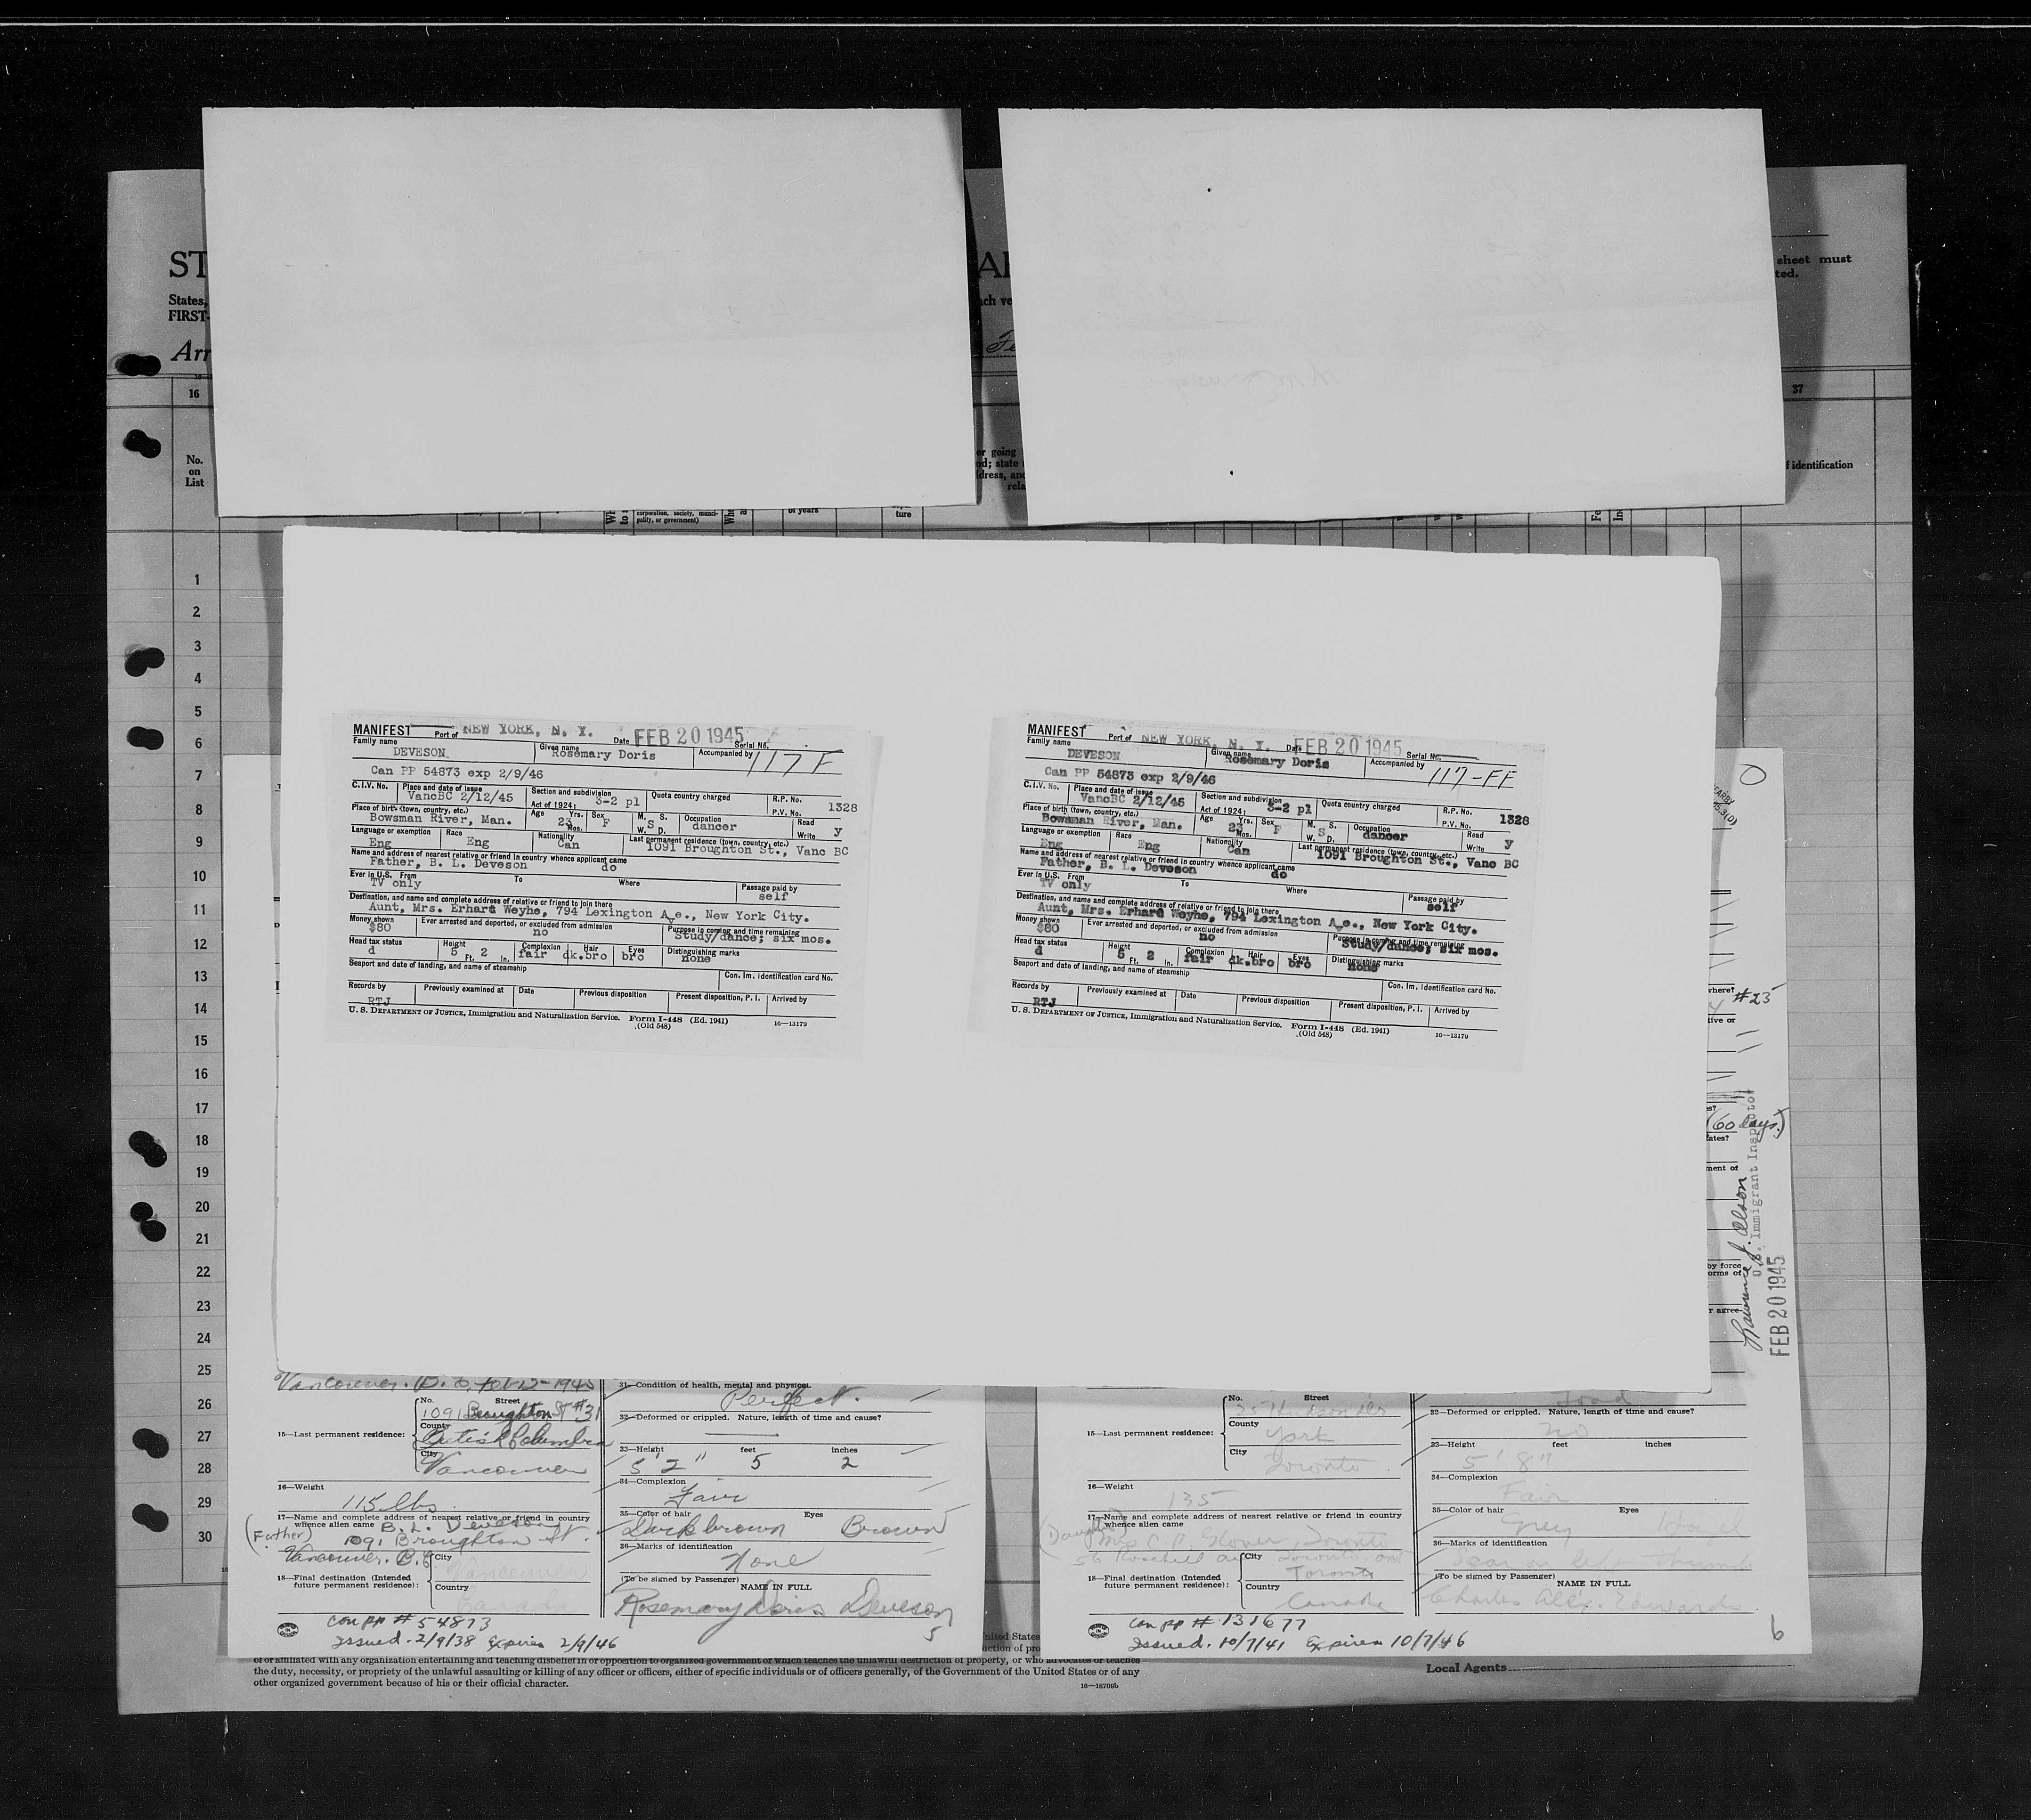 ST
AR
sheet must
ted.
States,
ach ve
FIRST-
Arr
Fe
16
37
No.
on
List
er going
d; state
ddress, and
rela
f identification
corporation, society, munci-
pality, or government)
of years
ture
1
2
3
4
5
6
7
8
9
10
11
12
13
14
15
16
17
18
19
20
21
22
23
24
25
26
27
28
29
30
MANIFEST Port of NEW YORK, N. Y. Date FEB 20 1945 Serial No.
Family name DEVESON Given name Rosemary Doris Accompanied by 117 F
Can PP 54873 exp 2/9/46
C.I.V. No. Place and date of issue VancBC 2/12/45 Section and subdivision Act of 1924: 3-2 pl Quota country charged R.P. No. P.V. No. 1328
Place of birth (town, country, etc.) Bowsman River, Man. Age 23 Yrs. Mos. Sex F M. S. W. D. S Occupation dancer Read Write y
Language or exemption Eng Race Eng Nationality Can Last permanent residence (town, country, etc.) 1091 Broughton St., Vanc BC
Name and address of nearest relative or friend in country whence applicant came
Father, B. L. Deveson do
Ever in U.S. From TV only To Where Passage paid by self
Destination, and name and complete address of relative or friend to join there
Aunt, Mrs. Erhard Weyhe, 794 Lexington Ave., New York City.
Money shown $80 Ever arrested and deported, or excluded from admission no Purpose in coming and time remaining Study/dance; six mos.
Head tax status d Height 5 Ft. 2 In. Complexion fair Hair dk.bro Eyes bro Distinguishing marks none
Seaport and date of landing, and name of steamship Con. Im. Identification card No.
Records by RTJ Previously examined at Date Previous disposition Present disposition, P. I. Arrived by
U. S. DEPARTMENT OF JUSTICE, Immigration and Naturalization Service. Form I-448 (Ed. 1941) 16—13179
(Old 548)
MANIFEST Port of NEW YORK, N. Y. Date FEB 20 1945 Serial No.
Family name DEVESON Given name Rosemary Doris Accompanied by 117-FF
Can PP 54873 exp 2/9/46
C.I.V. No. Place and date of issue VancBC 2/12/45 Section and subdivision Act of 1924: 3-2 pl Quota country charged R.P. No. P.V. No. 1328
Place of birth (town, country, etc.) Bowsman River, Man. Age 23 Yrs. Mos. Sex F M. S. W. D. S Occupation dancer Read Write y
Language or exemption Eng Race Eng Nationality Can Last permanent residence (town, country, etc.) 1091 Broughton St., Vanc BC
Name and address of nearest relative or friend in country whence applicant came
Father, B. L. Deveson do
Ever in U.S. From TV only To Where Passage paid by self
Destination, and name and complete address of relative or friend to join there
Aunt, Mrs. Erhard Weyhe, 794 Lexington Ave., New York City.
Money shown $80 Ever arrested and deported, or excluded from admission no Purpose in coming and time remaining Study/dance; six mos.
Head tax status d Height 5 Ft. 2 In. Complexion fair Hair dk.bro Eyes bro Distinguishing marks none
Seaport and date of landing, and name of steamship Con. Im. Identification card No.
Records by RTJ Previously examined at Date Previous disposition Present disposition, P. I. Arrived by
U. S. DEPARTMENT OF JUSTICE, Immigration and Naturalization Service. Form I-448 (Ed. 1941) 16—13179
(Old 548)
where?
#25
tive or
(60 days.)
ates?
ment of
by force
orms of
r agree
Lawrence J. Olson
U.S. Immigrant Inspector
FEB 20 1945
Vancouver. B.C. Feb 12-1945
No. Street
1091 Broughton St #31
County
British Columbia
15—Last permanent residence:
City
Vancouver
16—Weight
115 lbs.
17—Name and complete address of nearest relative or friend in country
whence alien came B. L. Deveson
(Father) 1091 Broughton St.
Vancouver. B.C. City
Vancouver
18—Final destination (Intended
future permanent residence):
Country
Canada
Can pp # 54873
Issued. 2/9/38 Expires 2/9/46
31—Condition of health, mental and physical
Perfect.
32—Deformed or crippled. Nature, length of time and cause?
33—Height feet inches
5' 2" 5 2
34—Complexion
Fair
35—Color of hair Eyes
Dark brown Brown
36—Marks of identification
None
(To be signed by Passenger) NAME IN FULL
Rosemary Doris Deveson
5
No. Street
25 Hudson Dr
County
York
15—Last permanent residence:
City
Toronto.
16—Weight
135
17—Name and complete address of nearest relative or friend in country
whence alien came
(Daughter) Mrs C. P. Glover, Toronto
56 Rosehill av Toronto ont
City
Toronto
18—Final destination (Intended
future permanent residence):
Country
Canada
Can pp # 131677
Issued. 10/7/41 Expires 10/7/46
Good
32—Deformed or crippled. Nature, length of time and cause?
no
33—Height feet inches
5' 8"
34—Complexion
Fair
35—Color of hair Eyes
Grey Hazel
36—Marks of identification
Scar on left thumb
(To be signed by Passenger) NAME IN FULL
Charles Alex. Edwards
6
United States
uction of pro
of or affiliated with any organization entertaining and teaching disbelief in or opposition to organized government or which teaches the unlawful destruction of property, or who advocates or teaches
the duty, necessity, or propriety of the unlawful assaulting or killing of any officer or officers, either of specific individuals or of officers generally, of the Government of the United States or of any
other organized government because of his or their official character.
16—18709b
Local Agents